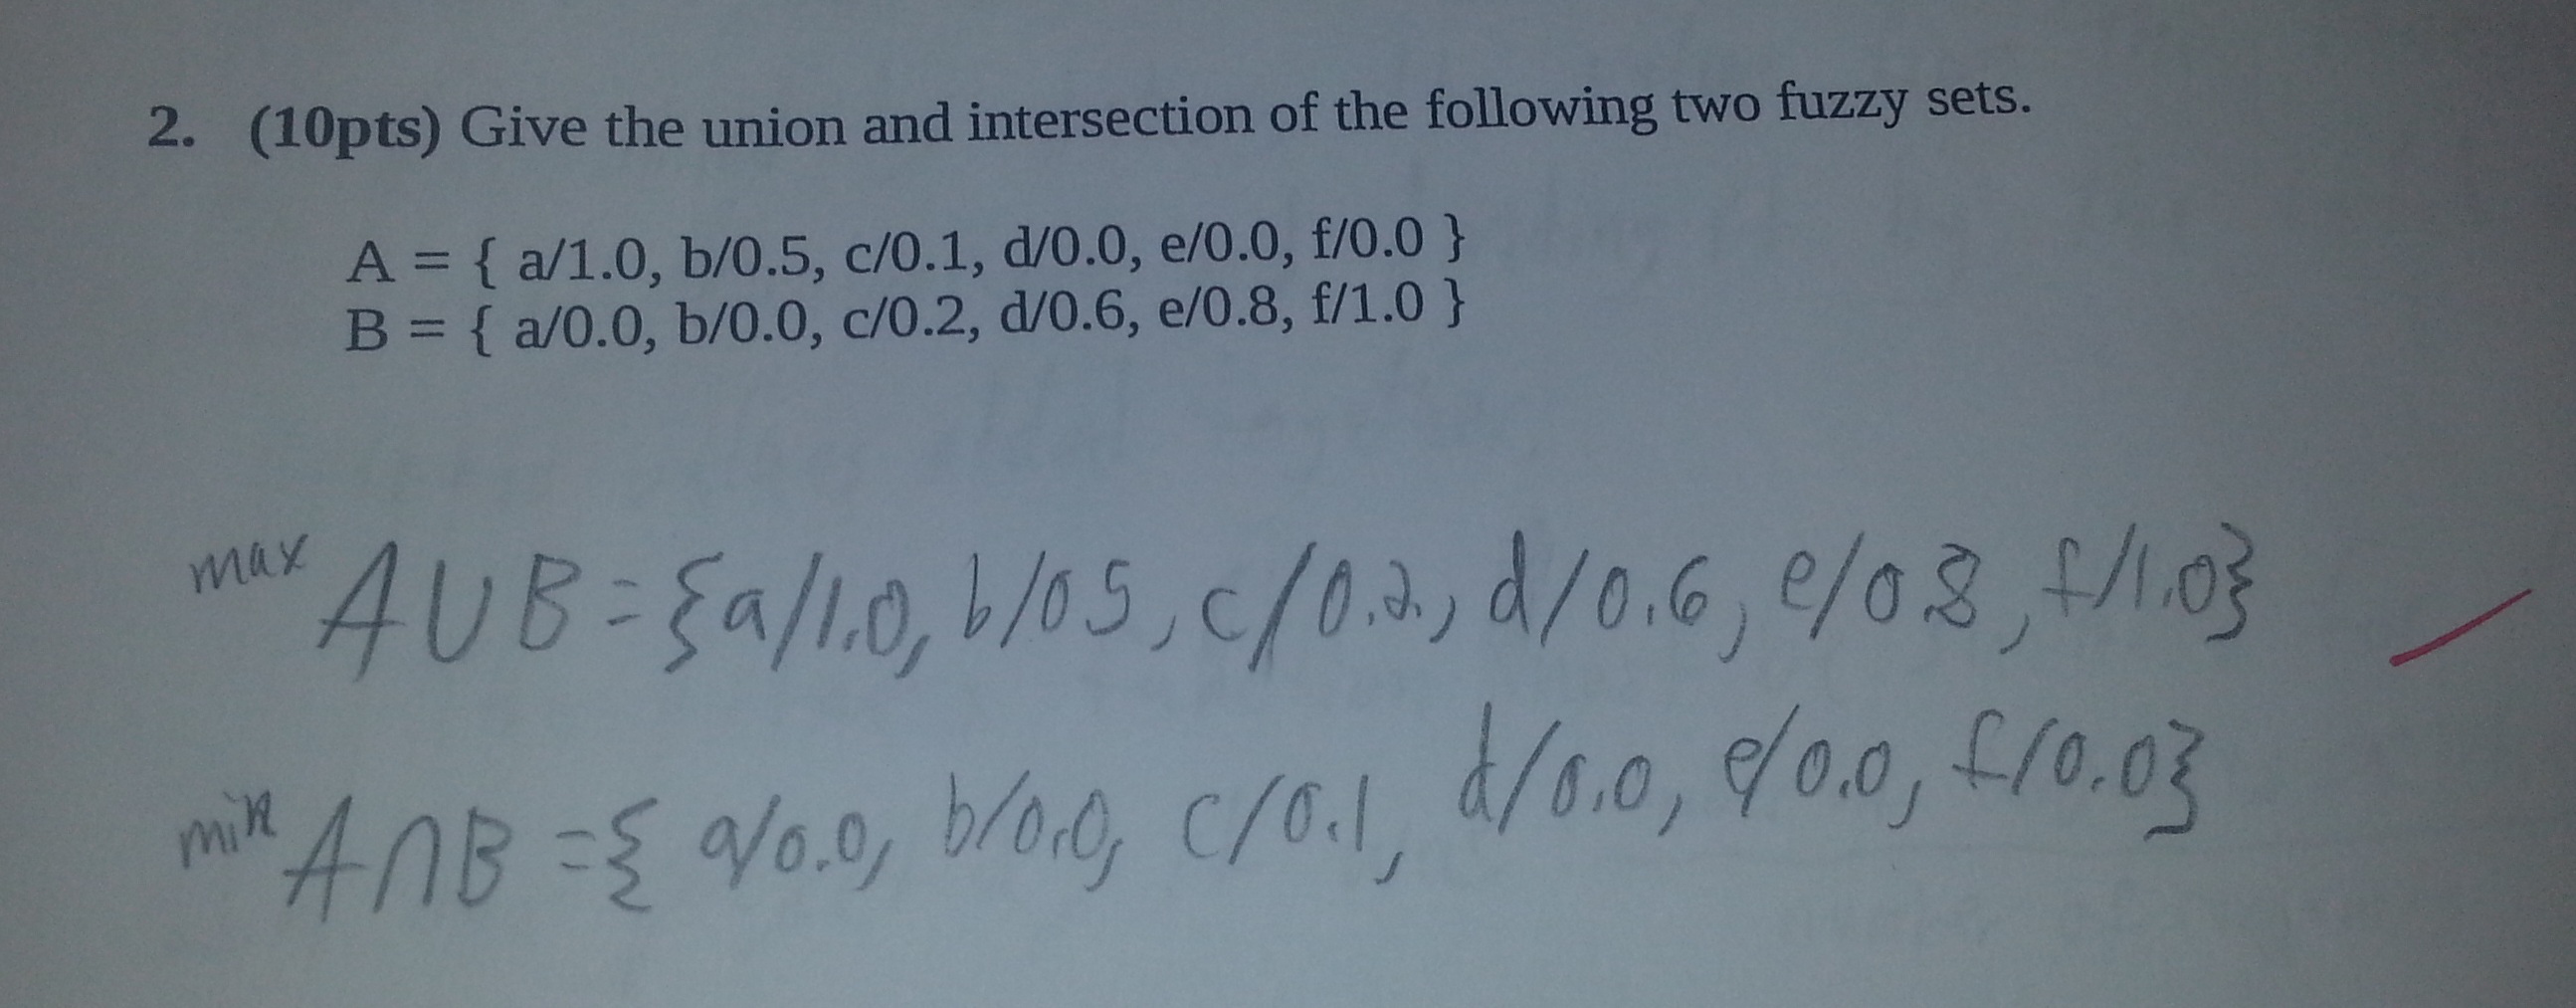 2. (10pts) Give the union and intersection of the following two fuzzy sets.
A = { a/1.0, b/0.5, c/0.1, d/0.0, e/0.0, f/0.0 }
B = { a/0.0, b/0.0, c/0.2, d/0.6, e/0.8, f/1.0 }
max A∪B={a/1.0, b/05, c/0.2, d/0.6, e/08, f/1.0}
min A∩B={ a/0.0, b/0.0, c/0.1, d/0.0, e/0.0, f/0.0}